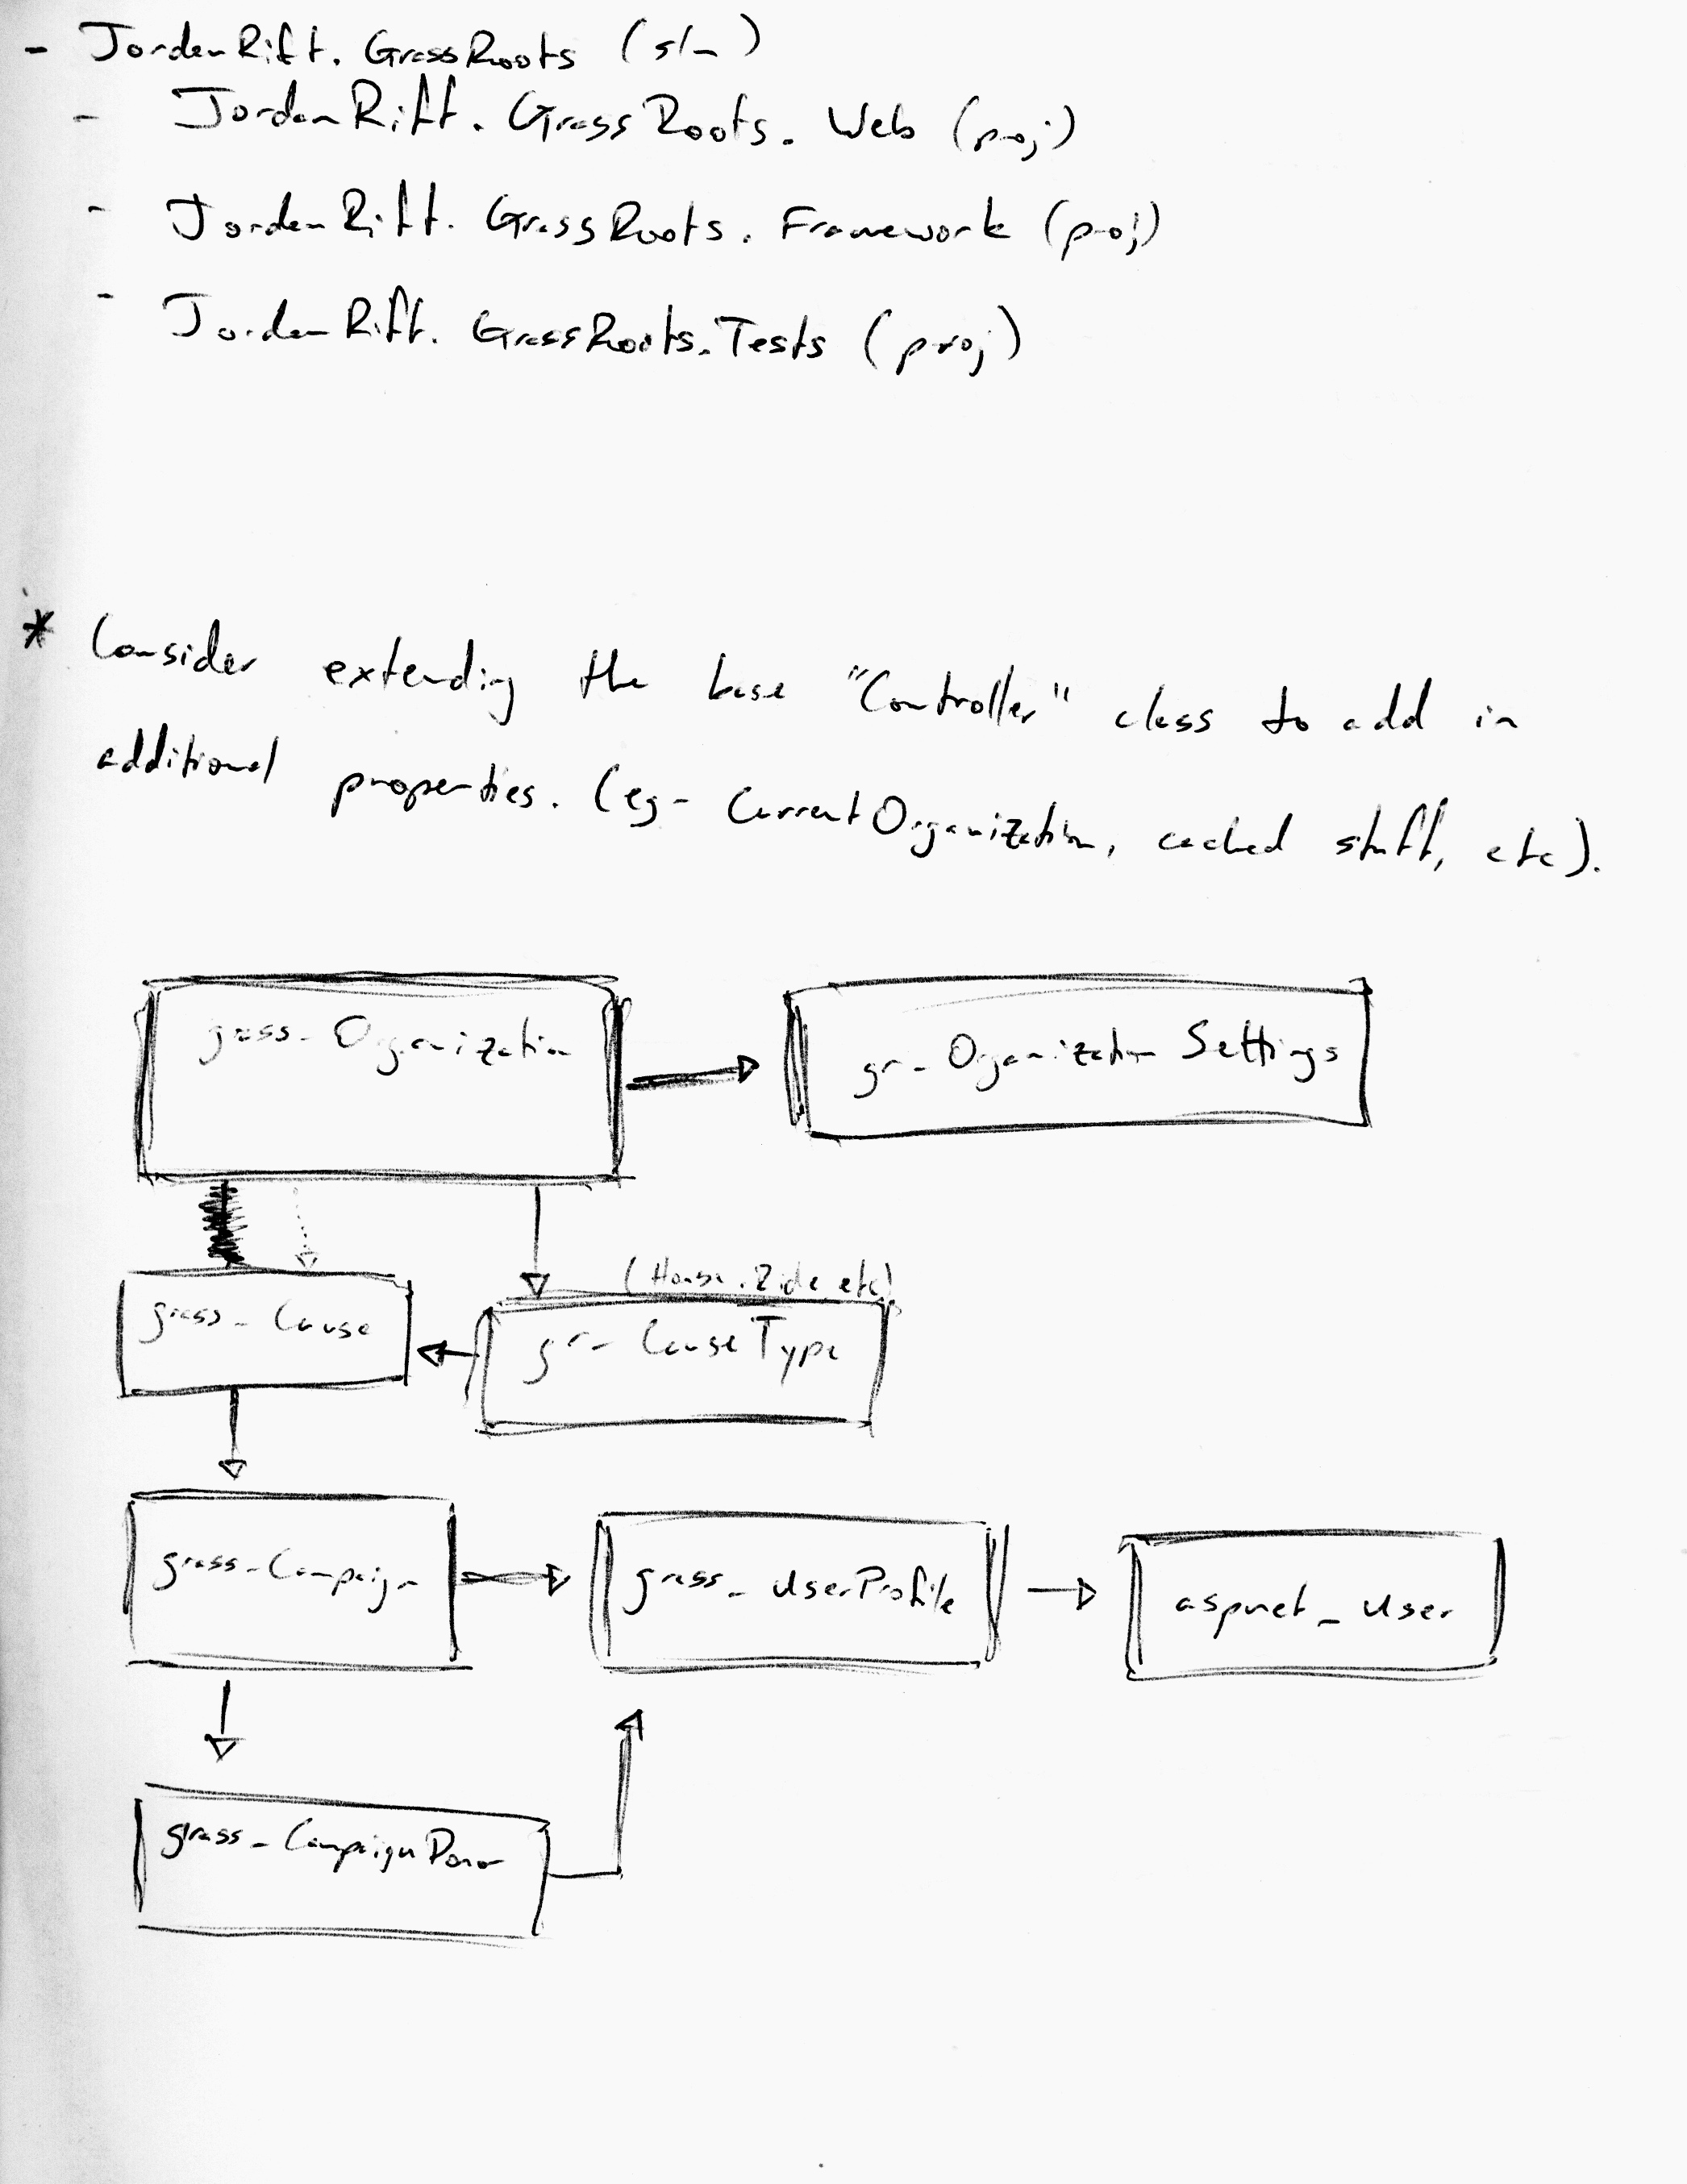 - JordanRift. GrassRoots (sln)
- JordanRift. GrassRoots. Web (proj)
- JordanRift. GrassRoots. Framework (proj)
- JordanRift. GrassRoots. Tests (proj)
* Consider extending the base "Controller" class to add in
additional properties. (eg - CurrentOrganization, cached stuff, etc).
grass_Organization
gr_OrganizationSettings
(House, Ride etc)
grass_Cause
gr_CauseType
grass_Campaign
grass_UserProfile
aspnet_User
grass_CampaignDonor